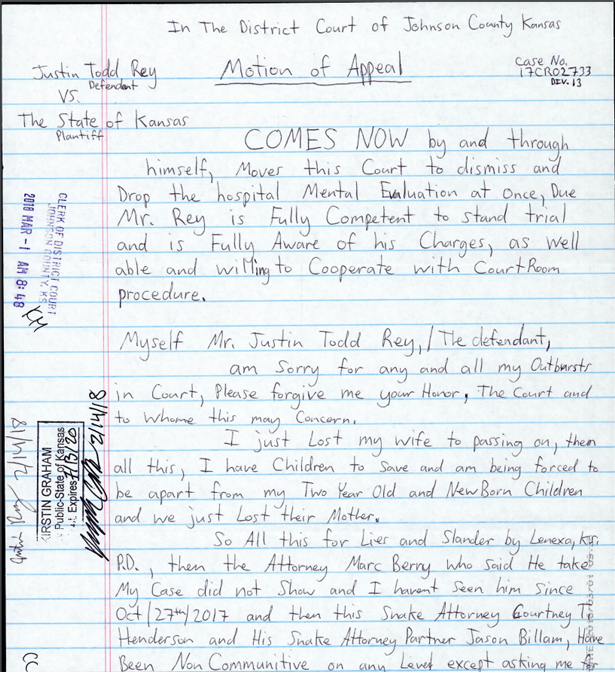 In The District Court of Johnson County Kansas
Justin Todd Rey
Defendant
VS.
The State of Kansas
Plantiff
Motion of Appeal
Case No.
17CR02733
DIV. 13
COMES NOW by and through
himself, Moves this Court to dismiss and
Drop the hospital Mental Evaluation at once, Due
Mr. Rey is Fully Competent to stand trial
and is Fully Aware of his Charges, as well
able and willing to Cooperate with CourtRoom
procedure.
Myself Mr. Justin Todd Rey, / The defendant,
am Sorry for any and all my Outbursts
in Court, Please forgive me your Honor, The Court and
to Whome this may Concern.
I just Lost my wife to passing on, then
all this, I have Children to Save and am being forced to
be apart from my Two Year Old and NewBorn Children
and we just Lost their Mother.
So All this for Lies and Slander by Lenexa, Ks.
P.D., then the Attorney Marc Berry who said He take
My Case did not Show and I havent Seen him Since
Oct/27th/2017 and then this Snake Attorney Courtney T.
Henderson and His Snake Attorney Partner Jason Billam, Have
Been Non Communitive on any Level except asking me for
CLERK OF DISTRICT COURT
JOHNSON COUNTY, KS
2018 MAR -1 AM 8:48
KIRSTIN GRAHAM
Public-State of Kansas
Expires 4/13/20
2/14/18
Justin Rey 2/14/18
CC